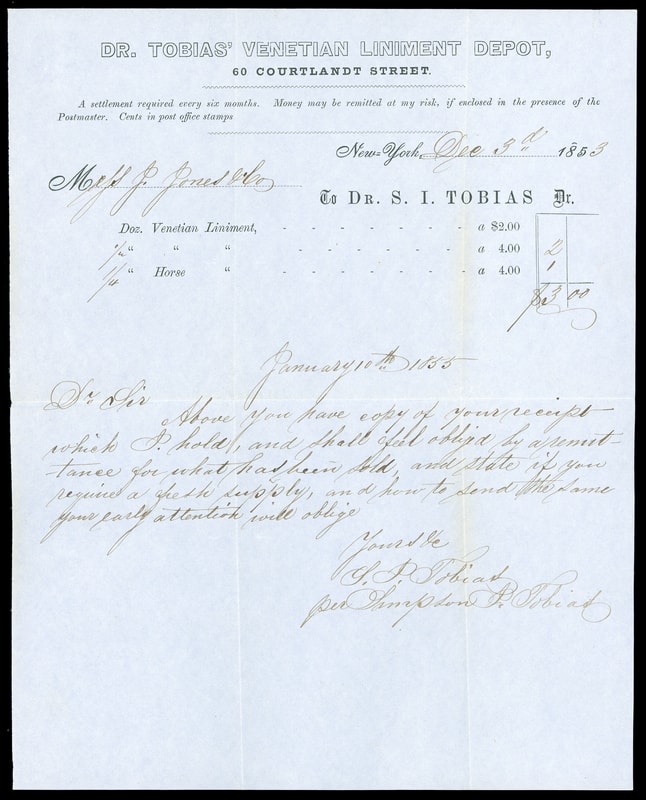 DR. TOBIAS' VENETIAN LINIMENT DEPOT,
60 COURTLANDT STREET.
A settlement required every six months. Money may be remitted at my risk, if enclosed in the presence of the
Postmaster. Cents in post office stamps
New-York, Dec 3d 1853
Mess J. Jones & Co
To DR. S. I. TOBIAS Dr.
Doz. Venetian Liniment, - - - - - - - a $2.00
1/2 " " " - - - - - - - a 4.00 2
1/4 " Horse " - - - - - - - a 4.00 1
$3 00
January 10th 1855
Dr Sir
Above you have copy of your receipt
which I hold, and shall feel obligd by a remit-
tance for what has been sold, and state if you
require a fresh supply, and how to send the same
your early attention will oblige
Yours &c
S. I. Tobias
per Simpson I. Tobias